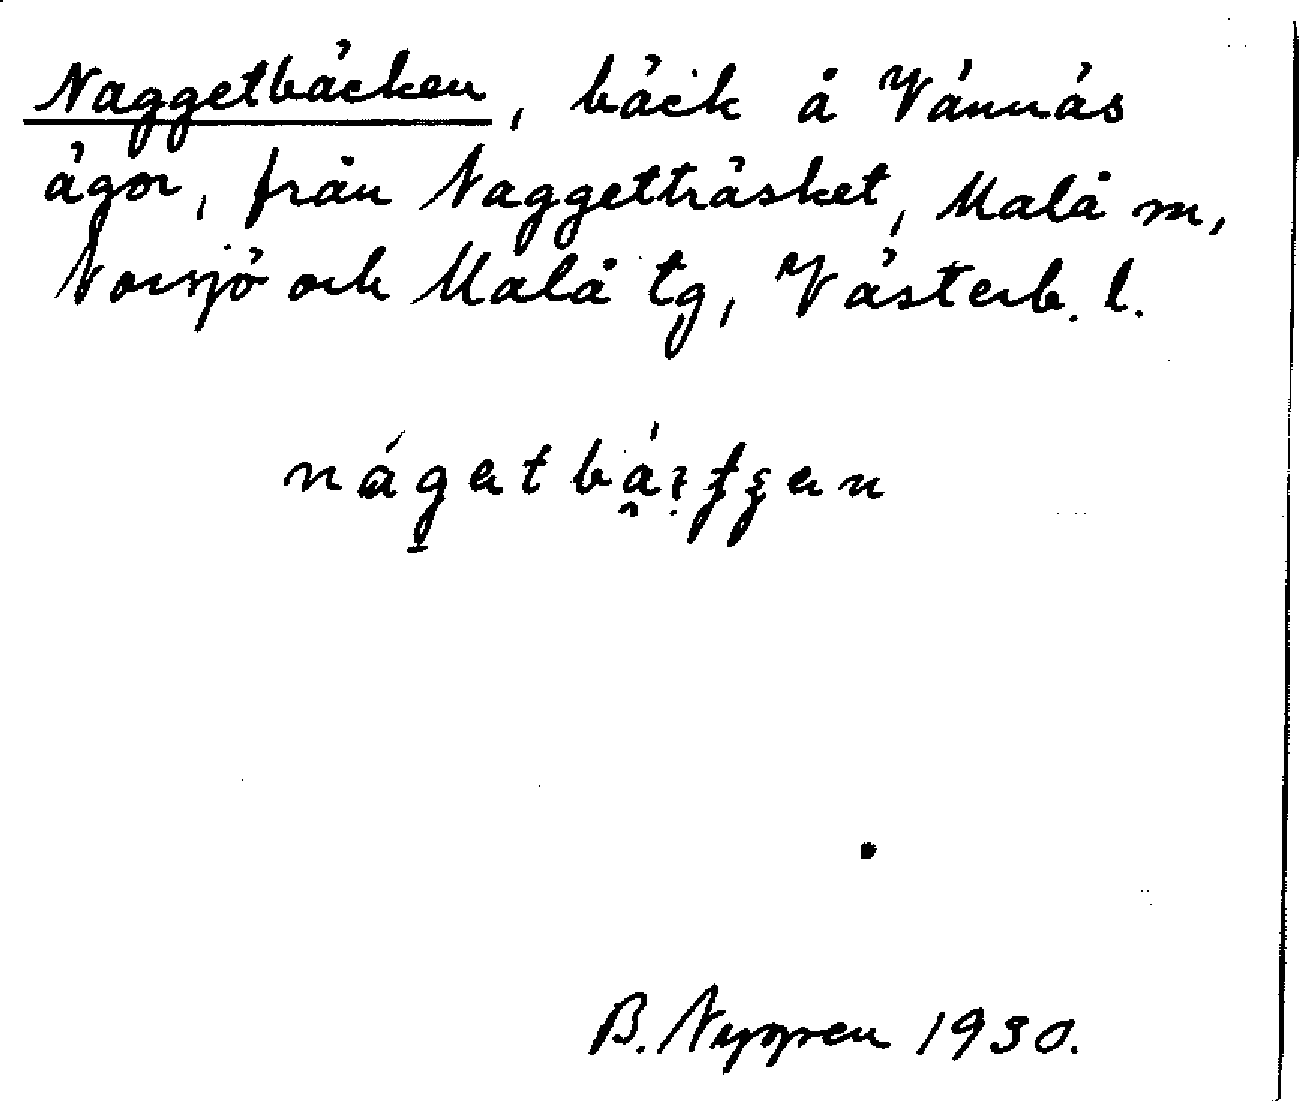 Naggetbäcken, bäck å Vännäs
ägor, från Naggetträsket, Malå m,
Norsjö och Malå tg, Västerb. l.
B. Nygren 1930.